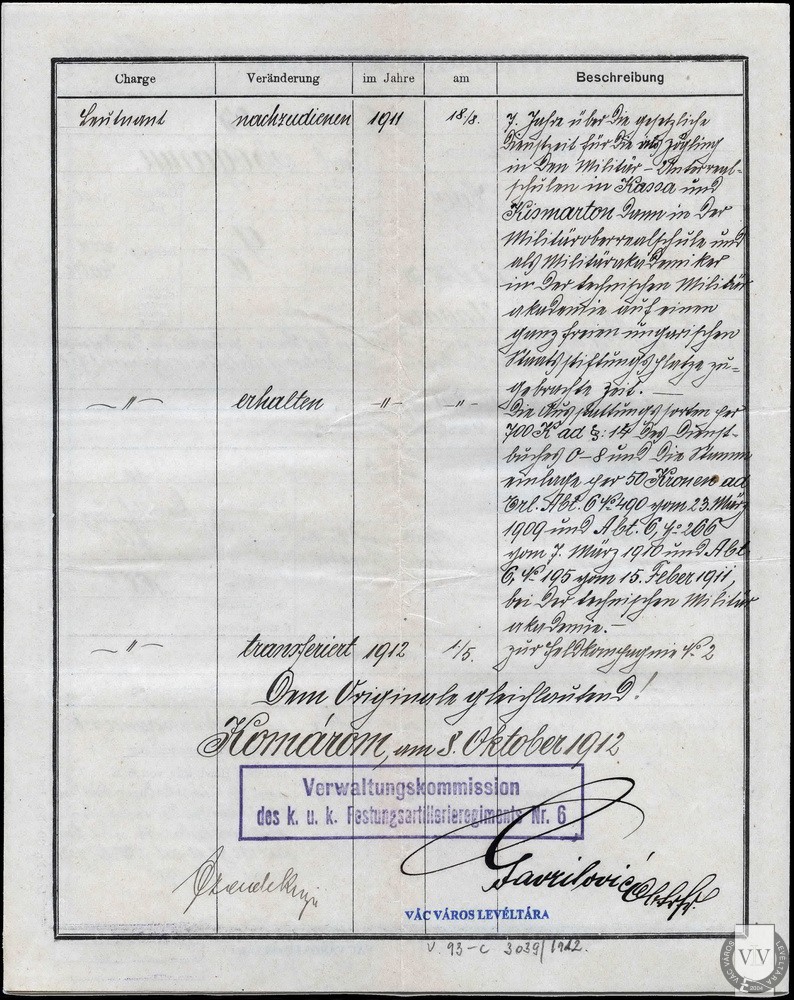 Charge Veränderung im Jahre am Beschreibung
Leutnant nachzudienen 1911 18/8. 7. Jahre über die gesetzliche
Dienstzeit für die als Zögling
in den Militär-Unterreal-
schulen in Kassa und
Kismarton dann in der
Militäroberrealschule und
als Militärakademiker
in der technischen Militär
akademie auf einen
ganz freien ungarischen
Staatsstiftungsplatze zu-
gebrachte Zeit. —
—"— erhalten —"— —"— Die Ausstattungssorten per
700 K ad §: 14 des Dienst-
buches O-8 und die Stamm
einlage per 50 Kronen ad
Erl. Abt. 6 No 490 vom 23. März
1909 und Abt. 6, No 266
vom 7. März 1910 und Abt.
6, No 195 vom 15. Feber 1911,
bei der technischen Militär
akademie. —
—"— transferiert 1912 1/5. zur Feldkompagnie No 2
Dem Originale gleichlautend!
Komárom, am 8. Oktober 1912
Verwaltungskommission
des k. u. k. Festungsartillerieregiments Nr. 6
Gavrilović
VÁC VÁROS LEVÉLTÁRA
V. 93-c 3039/1912.
VÁC VÁROS LEVÉLTÁRA
VV
2004